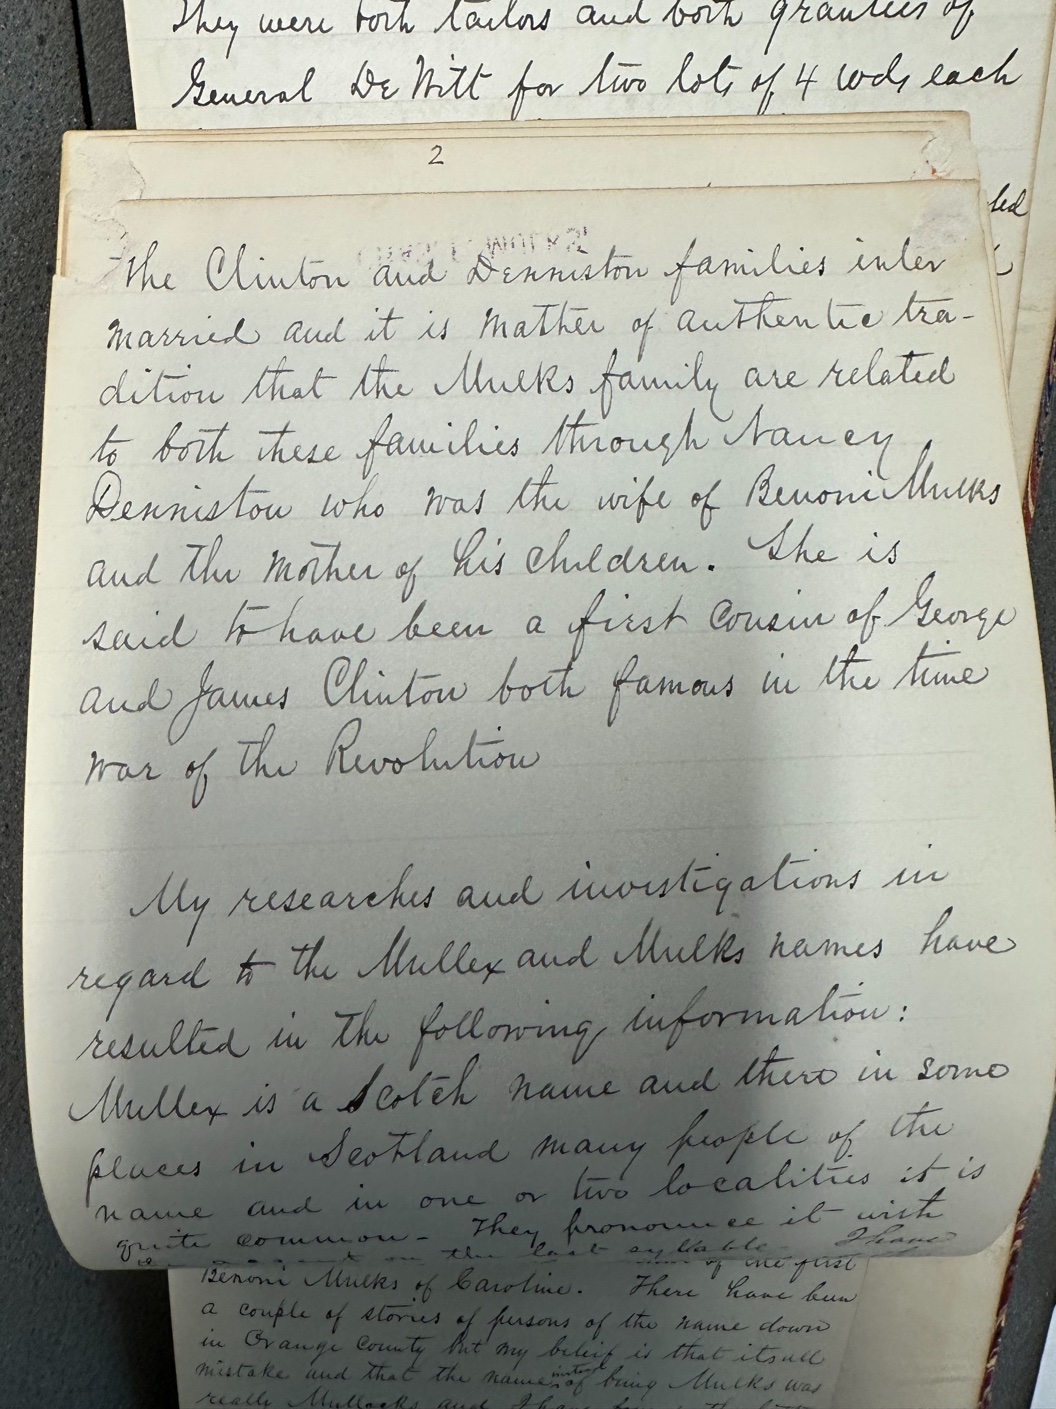 They were both tailors and both grantees of
General De Witt for two lots of 4 rods each
2
ted
The Clinton and Denniston families inter
married and it is mather of authentic tra-
dition that the Mulks family are related
to both these families through Nancy
Denniston who was the wife of Benoni Mulks
and the mother of his children. She is
said to have been a first cousin of George
and James Clinton both famous in the time
war of the Revolution
My researches and investigations in
regard to the Mullex and Mulks names have
resulted in the following information:
Mullex is a Scotch name and there in some
places in Scotland many people of the
name and in one or two localities it is
quite common - They pronounce it with
on the last syllable - I have
of the first
Benoni Mulks of Caroline. There have been
a couple of stories of persons of the name down
in Orange County but my belief is that its all
mistake and that the name instead of being Mulks was
really Mullocks and I have